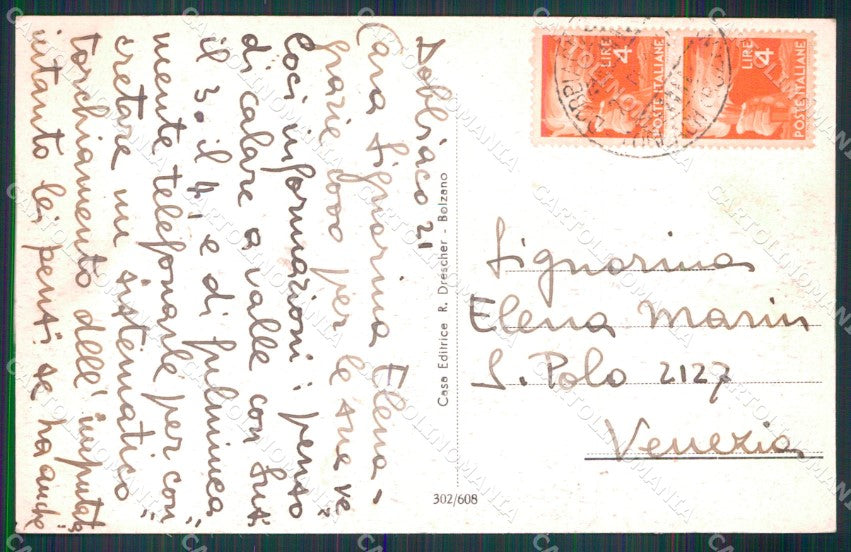 Dobbiaco 21
Cara Signorina Elena -
grazie loro per le sue ve
loci informazioni; penso
di calare a valle con
il 3 o il 4 e di fulminea
mente telefonarle per con
cretare un "sistematico"
torchiamento dell'imputata
intanto lei pensi se ha anche
Casa Editrice R. Drescher - Bolzano
302/608
LIRE 4
POSTE ITALIANE
LIRE 4
POSTE ITALIANE
Signorina
Elena Marin
S. Polo 2127
Venezia
CARTOLINOMANIA